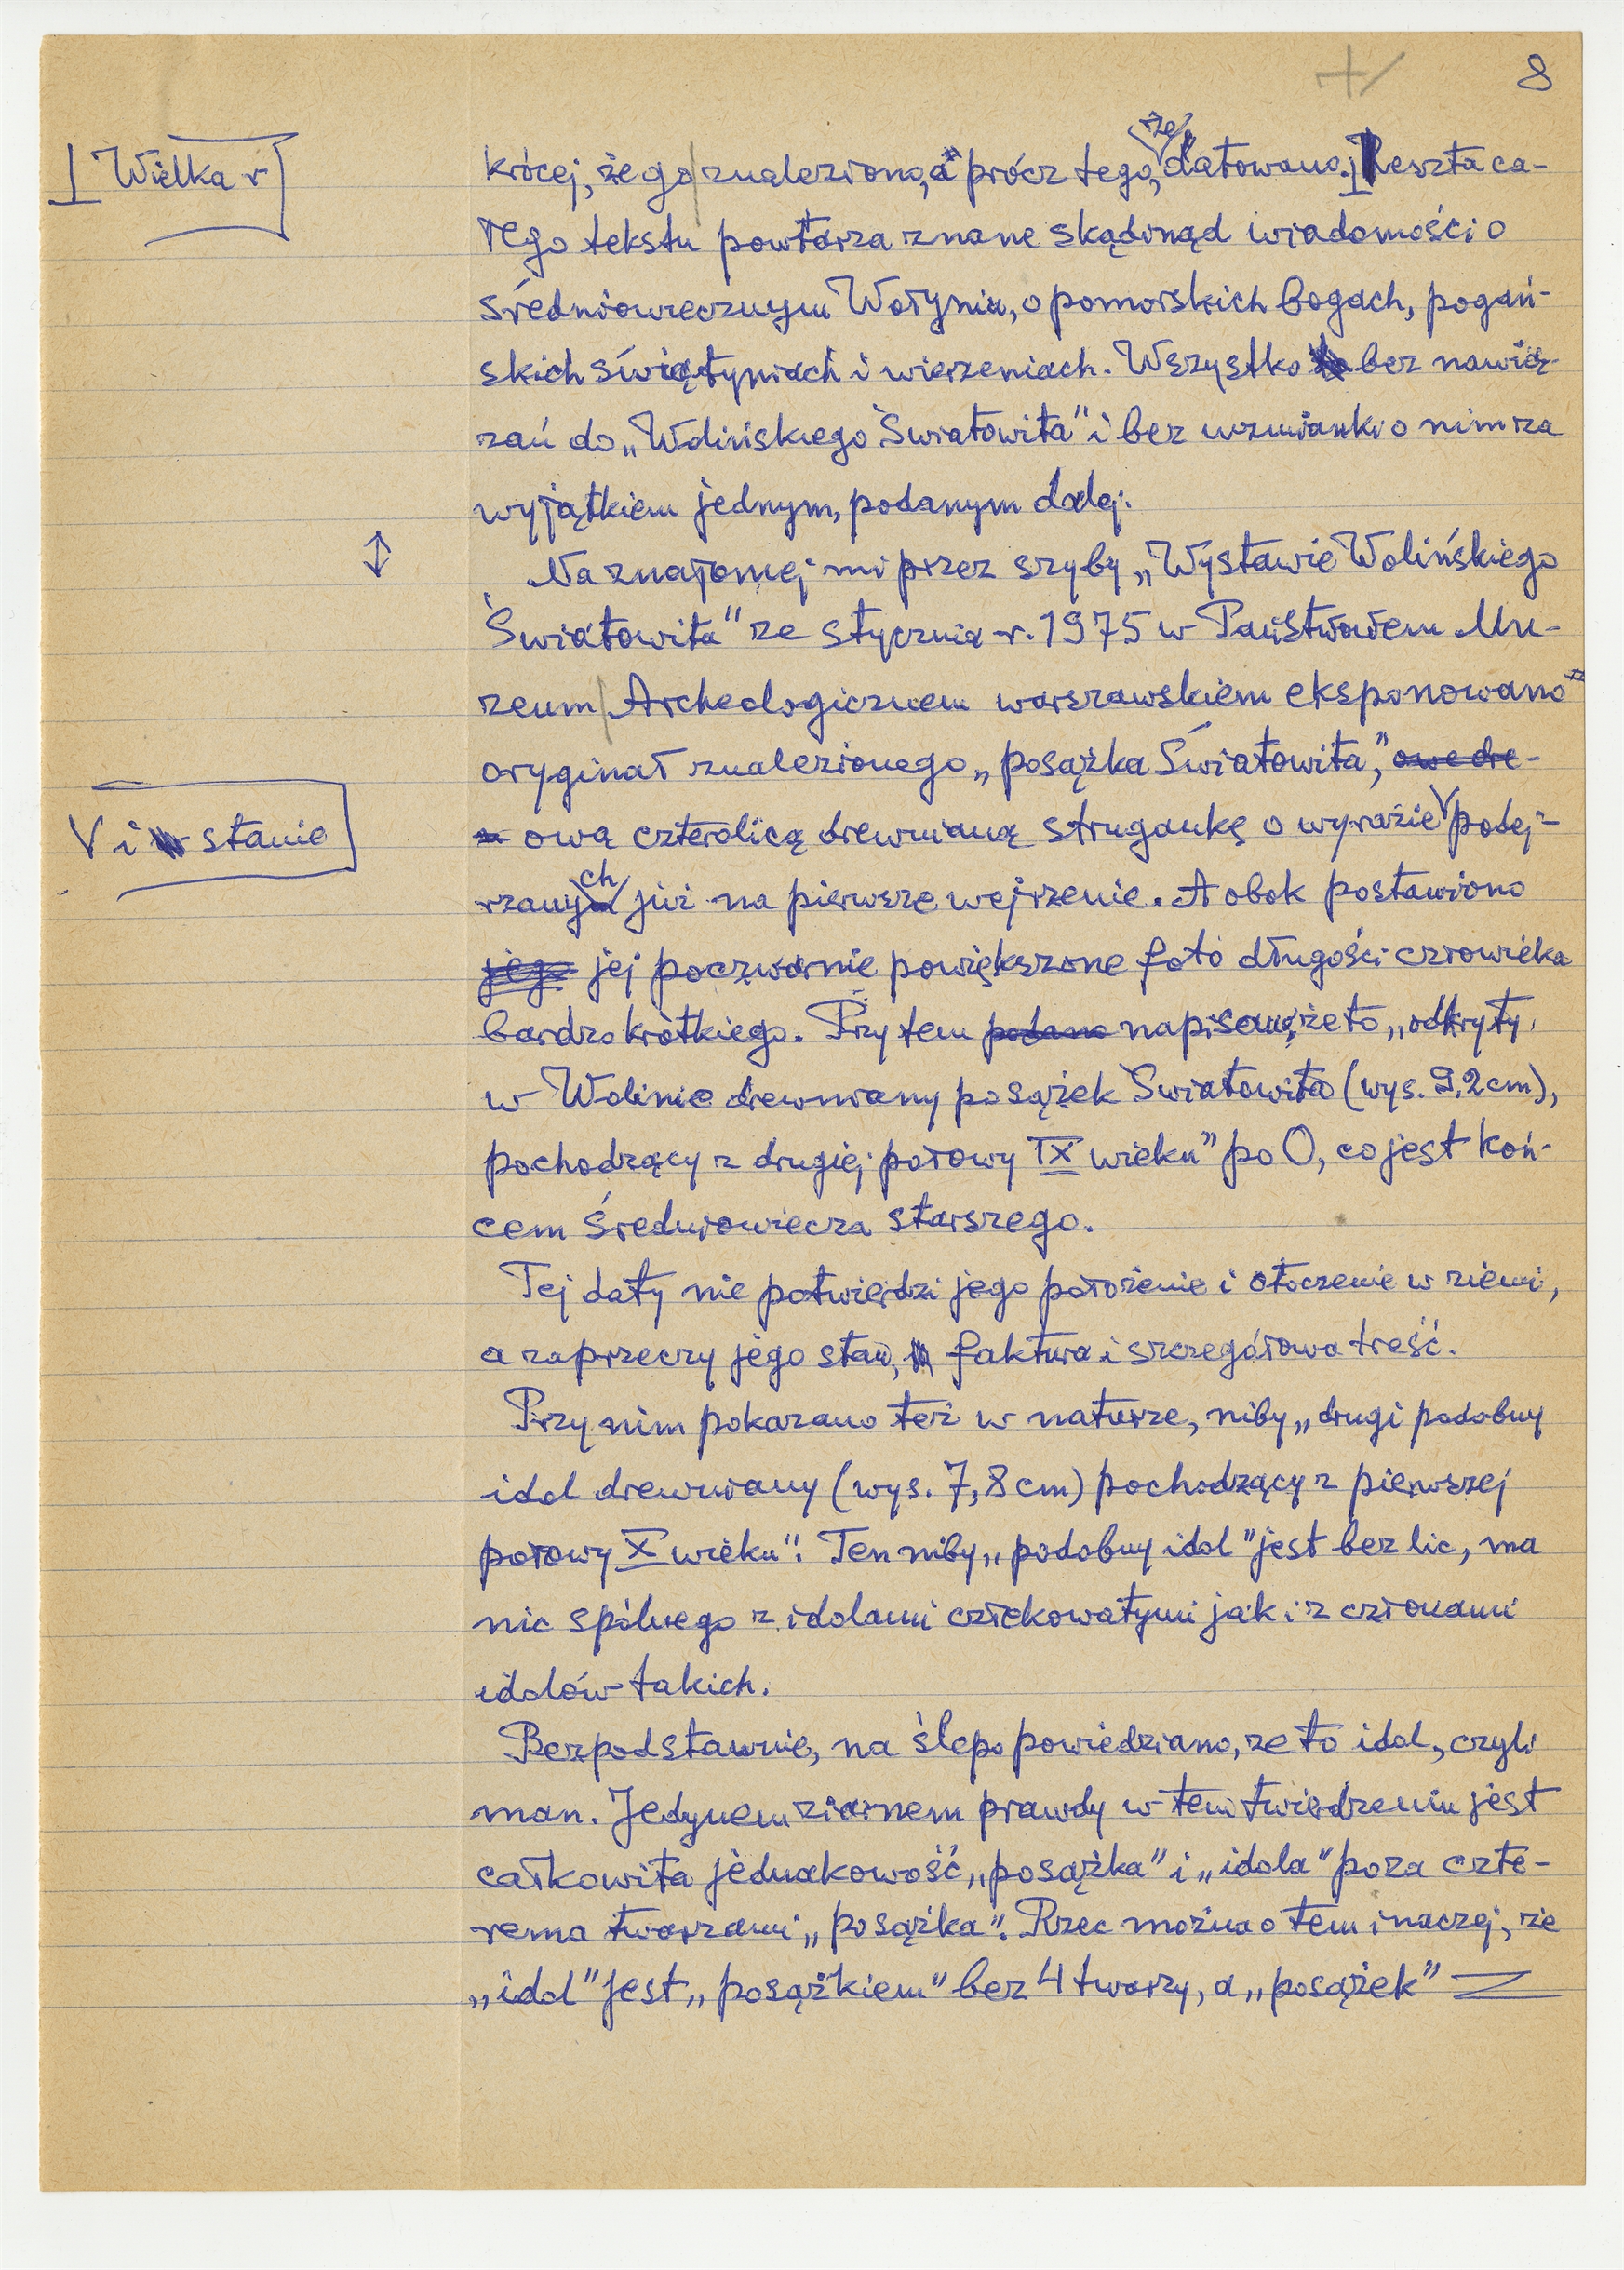 8
I Wielka r
krócej, że go znaleziono, a prócz tego, że datowano. Reszta ca-
łego tekstu powtarza znane skądinąd wiadomości o
średniowiecznym Wołyniu, o pomorskich bogach, pogań-
skich świątyniach i wierzeniach. Wszystko bez nawią-
zań do „Wolińskiego Światowita" i bez wzmianki o nim za
wyjątkiem jednym, podanym dalej.
Na znajomej mi przez szyby „Wystawie Wolińskiego
Światowita" ze stycznia r. 1975 w Państwowem Mu-
zeum Archeologicznem warszawskiem eksponowano
oryginał znalezionego „posążka Światowita", owe dre-
V i stanie
ową czterolicą drewnianą strugankę o wyrazie V podej-
rzanych już na pierwsze wejrzenie. A obok postawiono
jego jej poczwórnie powiększone foto długości człowieka
bardzo krótkiego. Przy tem podano napisano, że to „odkryty
w Wolinie drewniany posążek Światowita (wys. 9,2 cm),
pochodzący z drugiej połowy IX wieku" po 0, co jest koń-
cem Średniowiecza starszego.
Tej daty nie potwierdzi jego położenie i otoczenie w ziemi,
a zaprzeczy jego stan, faktura i szczegółowa treść.
Przy nim pokazano też w naturze, niby „drugi podobny
idol drewniany (wys. 7,8 cm) pochodzący z pierwszej
połowy X wieku". Ten niby „podobny idol" jest bez lic, ma
nic spólnego z idolami człekowatymi jak i z członami
idolów takich.
Bezpodstawnie, na ślepo powiedziano, że to idol, czyli
man. Jedynem ziarnem prawdy w tem twierdzeniu jest
całkowita jednakowość „posążka" i „idola" poza czte-
rema twarzami „posążka". Rzec można o tem inaczej, że
„idol" jest „posążkiem" bez 4 twarzy, a „posążek"